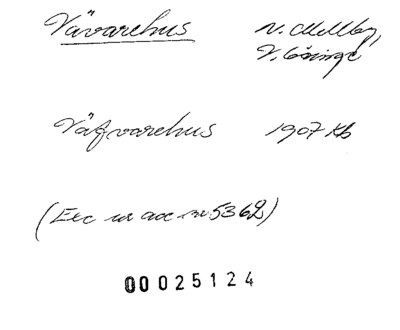 Vävarehus N. Mellby,
V. Göinge
Väfvarehus 1907 Kb
(Exc ur acc nr 5362)
00025124